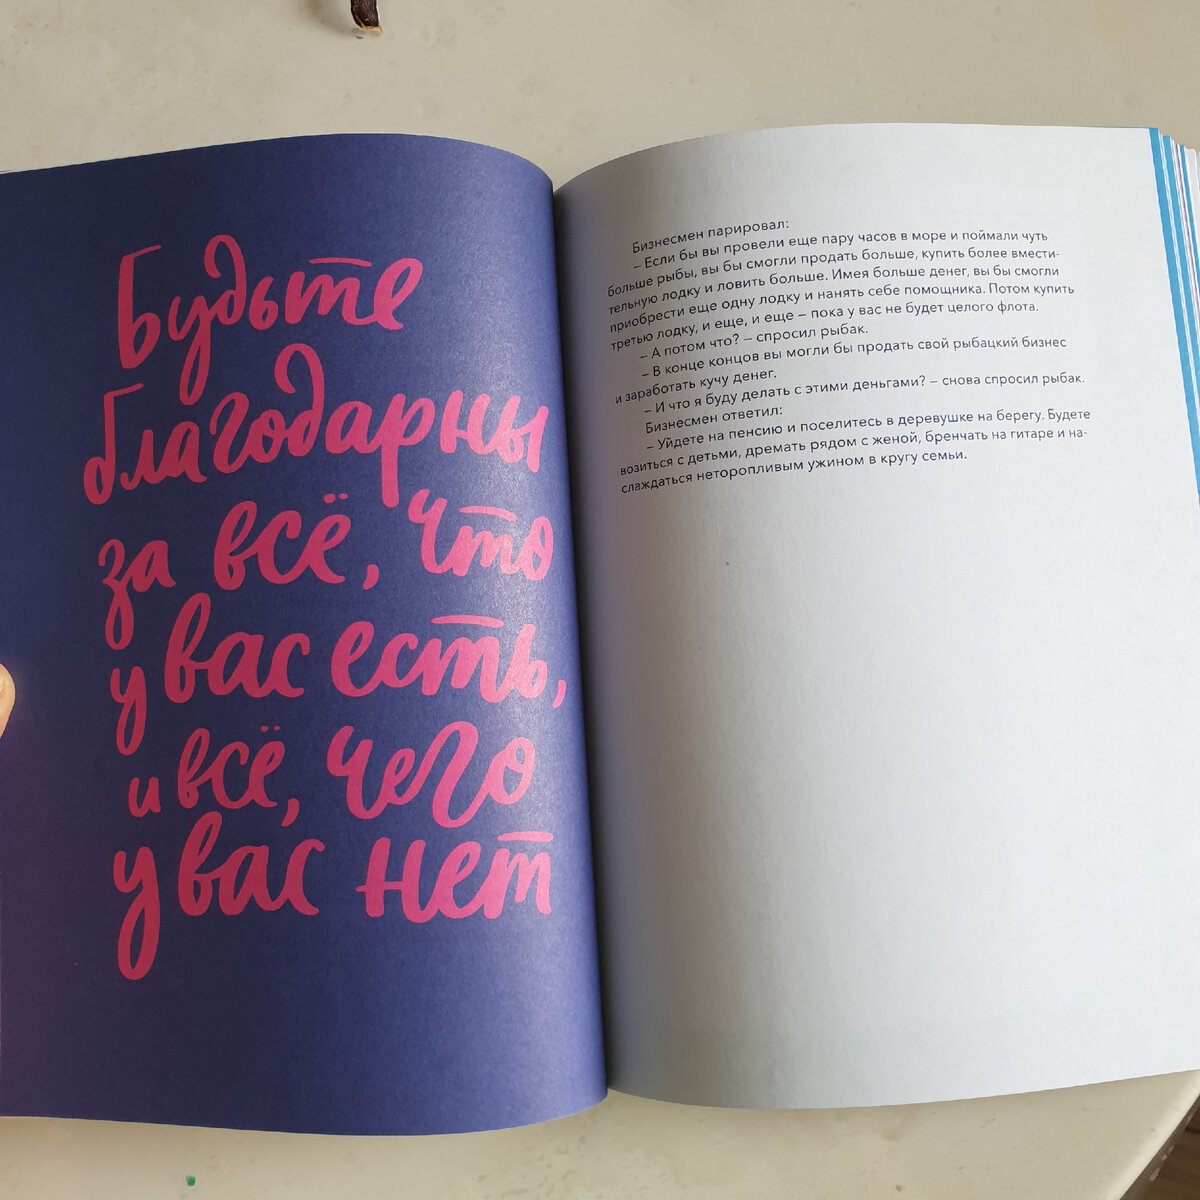 Будьте
благодарны
за всё, что
у вас есть,
и всё, чего
у вас нет
Бизнесмен парировал:
– Если бы вы провели еще пару часов в море и поймали чуть
больше рыбы, вы бы смогли продать больше, купить более вмести-
тельную лодку и ловить больше. Имея больше денег, вы бы смогли
приобрести еще одну лодку и нанять себе помощника. Потом купить
третью лодку, и еще, и еще – пока у вас не будет целого флота.
– А потом что? – спросил рыбак.
– В конце концов вы могли бы продать свой рыбацкий бизнес
и заработать кучу денег.
– И что я буду делать с этими деньгами? – снова спросил рыбак.
Бизнесмен ответил:
– Уйдете на пенсию и поселитесь в деревушке на берегу. Будете
возиться с детьми, дремать рядом с женой, бренчать на гитаре и на-
слаждаться неторопливым ужином в кругу семьи.